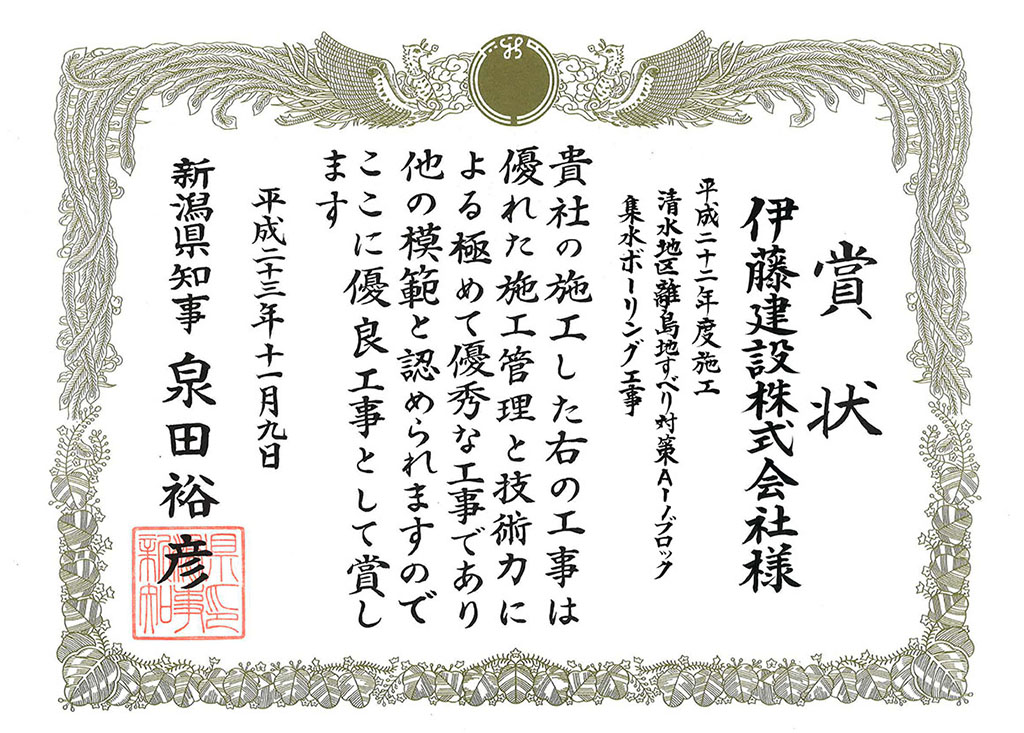 賞状
伊藤建設株式会社様
平成二十二年度施工
清水地区離島地すべり対策A-1ブロック
集水ボーリング工事
貴社の施工した右の工事は
優れた施工管理と技術力に
よる極めて優秀な工事であり
他の模範と認められますので
ここに優良工事として賞し
ます
平成二十三年十一月九日
新潟県知事 泉田裕彦
新潟県知事之印